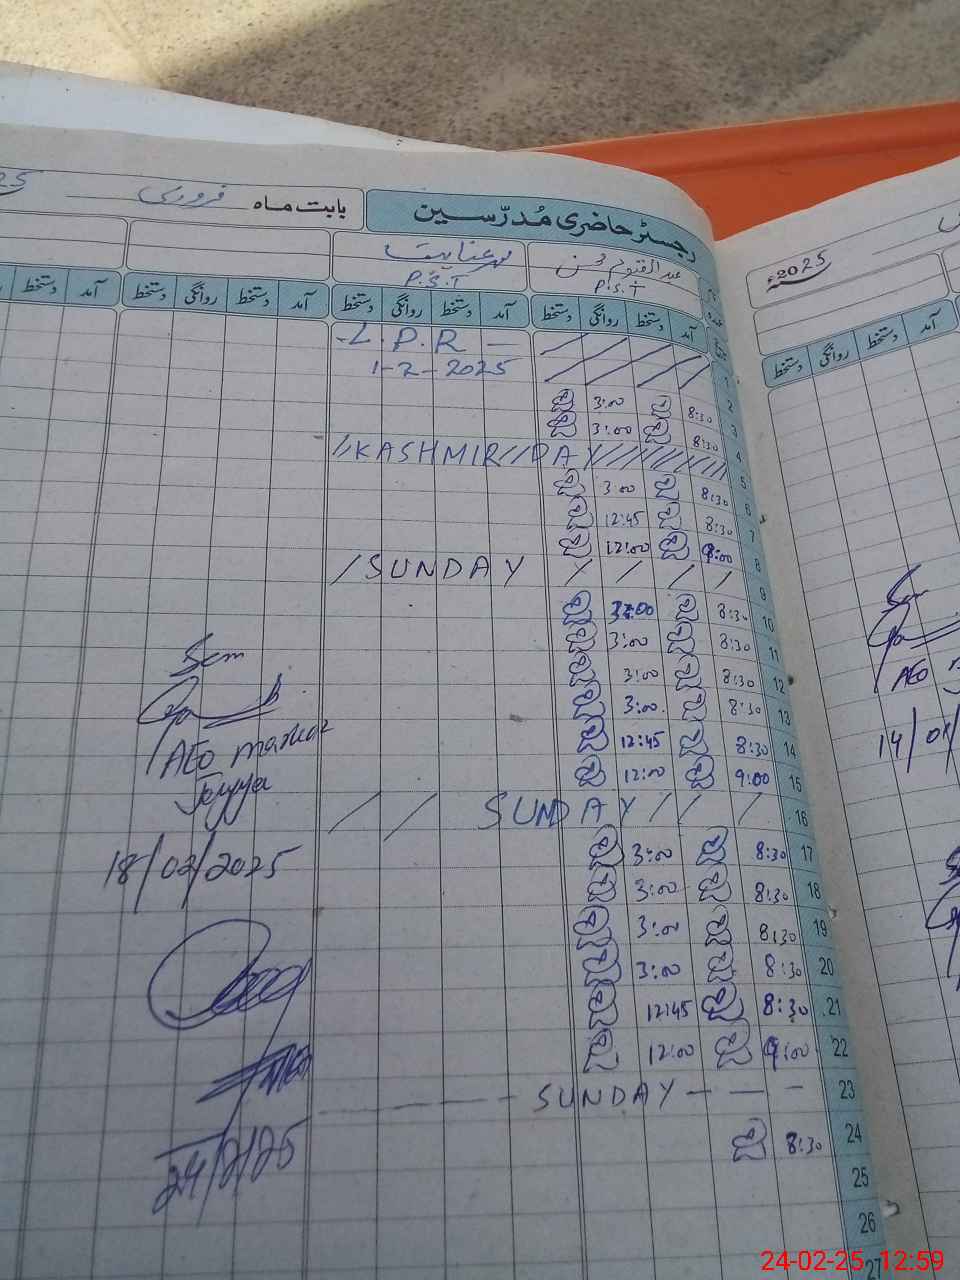 رجسٹر حاضری مُدرّسین
بابت ماہ فروری
2025
عنایت
P.S.T
P.S.T
آمد دستخط روانگی دستخط آمد دستخط روانگی دستخط آمد دستخط روانگی دستخط آمد
آمد دستخط روانگی دستخط
- L.P.R -
1
1-2-2025
2
8:30 3:00
3
8:30 3:00
4
KASHMIR DAY
5
8:30 3:00
6
8:30 12:45
7
9:00 12:00
8
SUNDAY
9
8:30
10
8:30 3:00
11
8:30 3:00
12
8:30 3:00
13
8:30 12:45
14
9:00 12:00
15
SUNDAY
16
8:30 3:00
17
8:30 3:00
18
8:30 3:00
19
8:30 3:00
20
8:30 12:45
21
9:00 12:00
22
SUNDAY
23
8:30
24
25
26
27
Seen
AEO
18/02/2025
24/2/25
AEO
14/0
24-02-25 12:59